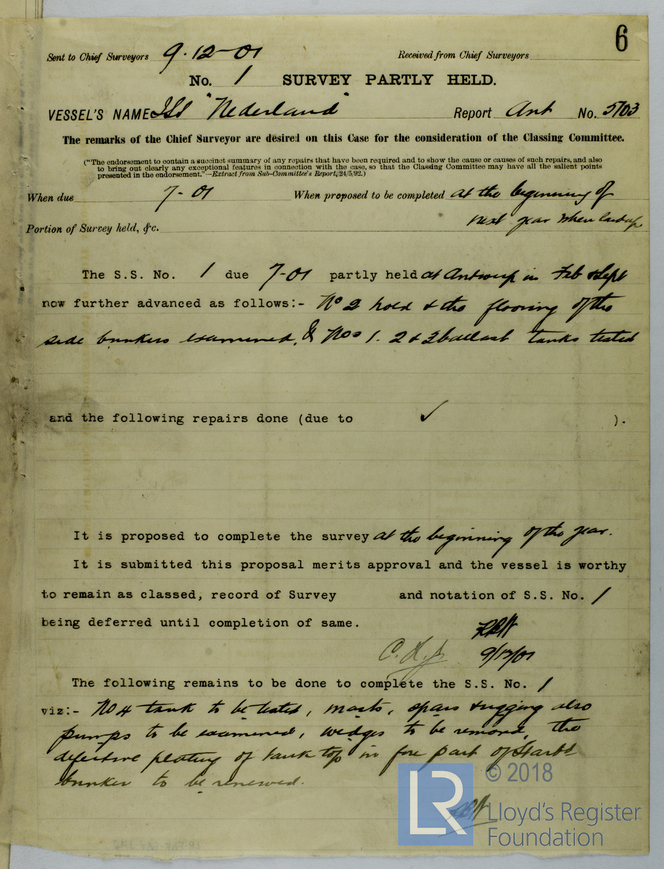 6
Sent to Chief Surveyors 9.12-01 Received from Chief Surveyors
No. 1 SURVEY PARTLY HELD.
VESSEL'S NAME "Nederland" Report Ant No. 5703
The remarks of the Chief Surveyor are desired on this Case for the consideration of the Classing Committee.
("The endorsement to contain a succinct summary of any repairs that have been required and to show the cause or causes of such repairs, and also
to bring out clearly any exceptional features in connection with the case, so that the Classing Committee may have all the salient points
presented in the endorsement."—Extract from Sub-Committee's Report, 24/5/92.)
When due 7-01 When proposed to be completed at the beginning of
next year when laid up
Portion of Survey held, &c.
The S.S. No. 1 due 7-01 partly held at Antwerp in Feb & Sept
now further advanced as follows:- No 2 hold & the flooring of the
side bunkers examined, & Nos 1. 2 & 3 ballast tanks tested
and the following repairs done (due to ✓ ).
It is proposed to complete the survey at the beginning of the year.
It is submitted this proposal merits approval and the vessel is worthy
to remain as classed, record of Survey and notation of S.S. No. 1
being deferred until completion of same.
9/12/01
The following remains to be done to complete the S.S. No. 1
viz:- No 4 tank to be tested, masts, spars & rigging also
pumps to be examined, wedges to be removed, the
defective plating of tank top in fore part of Starbd
bunker to be renewed.
© 2018
LR Lloyd's Register
Foundation